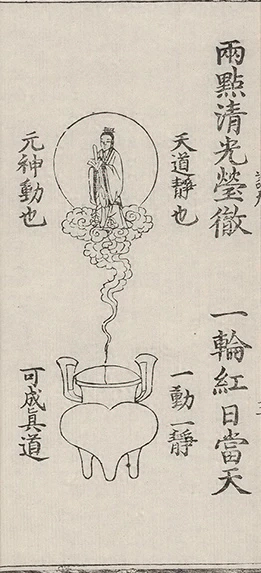 兩點清光瑩徹
一輪紅日當天
天道靜也
一動一靜
元神動也
可成眞道